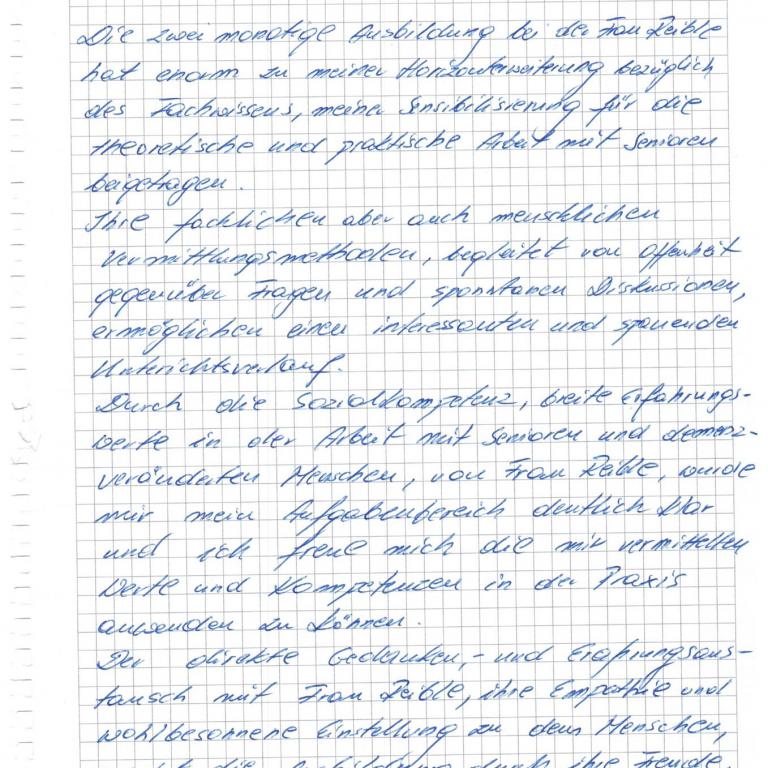 Die zwei monatige Ausbildung bei der Frau Reible
hat enorm zu meiner Horizonterweiterung bezüglich
des Fachwissens, meiner Sensibilisierung für die
theoretische und praktische Arbeit mit Senioren
beigetragen.
Ihre fachlichen aber auch menschlichen
Vermittlungsmethoden, begleitet von Offenheit
gegenüber Fragen und sponntanen Diskussionen,
ermöglichen einen interessanten und spanenden
Unterichtsverlauf.
Durch die Sozialkompetenz, breite Erfahrungs-
werte in der Arbeit mit Senioren und demenz-
veränderten Menschen, von Frau Reible, wurde
mir mein Aufgabenbereich deutlich klar
und ich freue mich die mir vermittelten
Werte und Kompetenzen in der Praxis
anwenden zu können.
Der direkte Gedanken,- und Erfahrungsaus-
tausch mit Frau Reible, ihre Empathie und
wohlbesonnene Einstellung zu dem Menschen,
die Ausbildung durch ihre Freude,